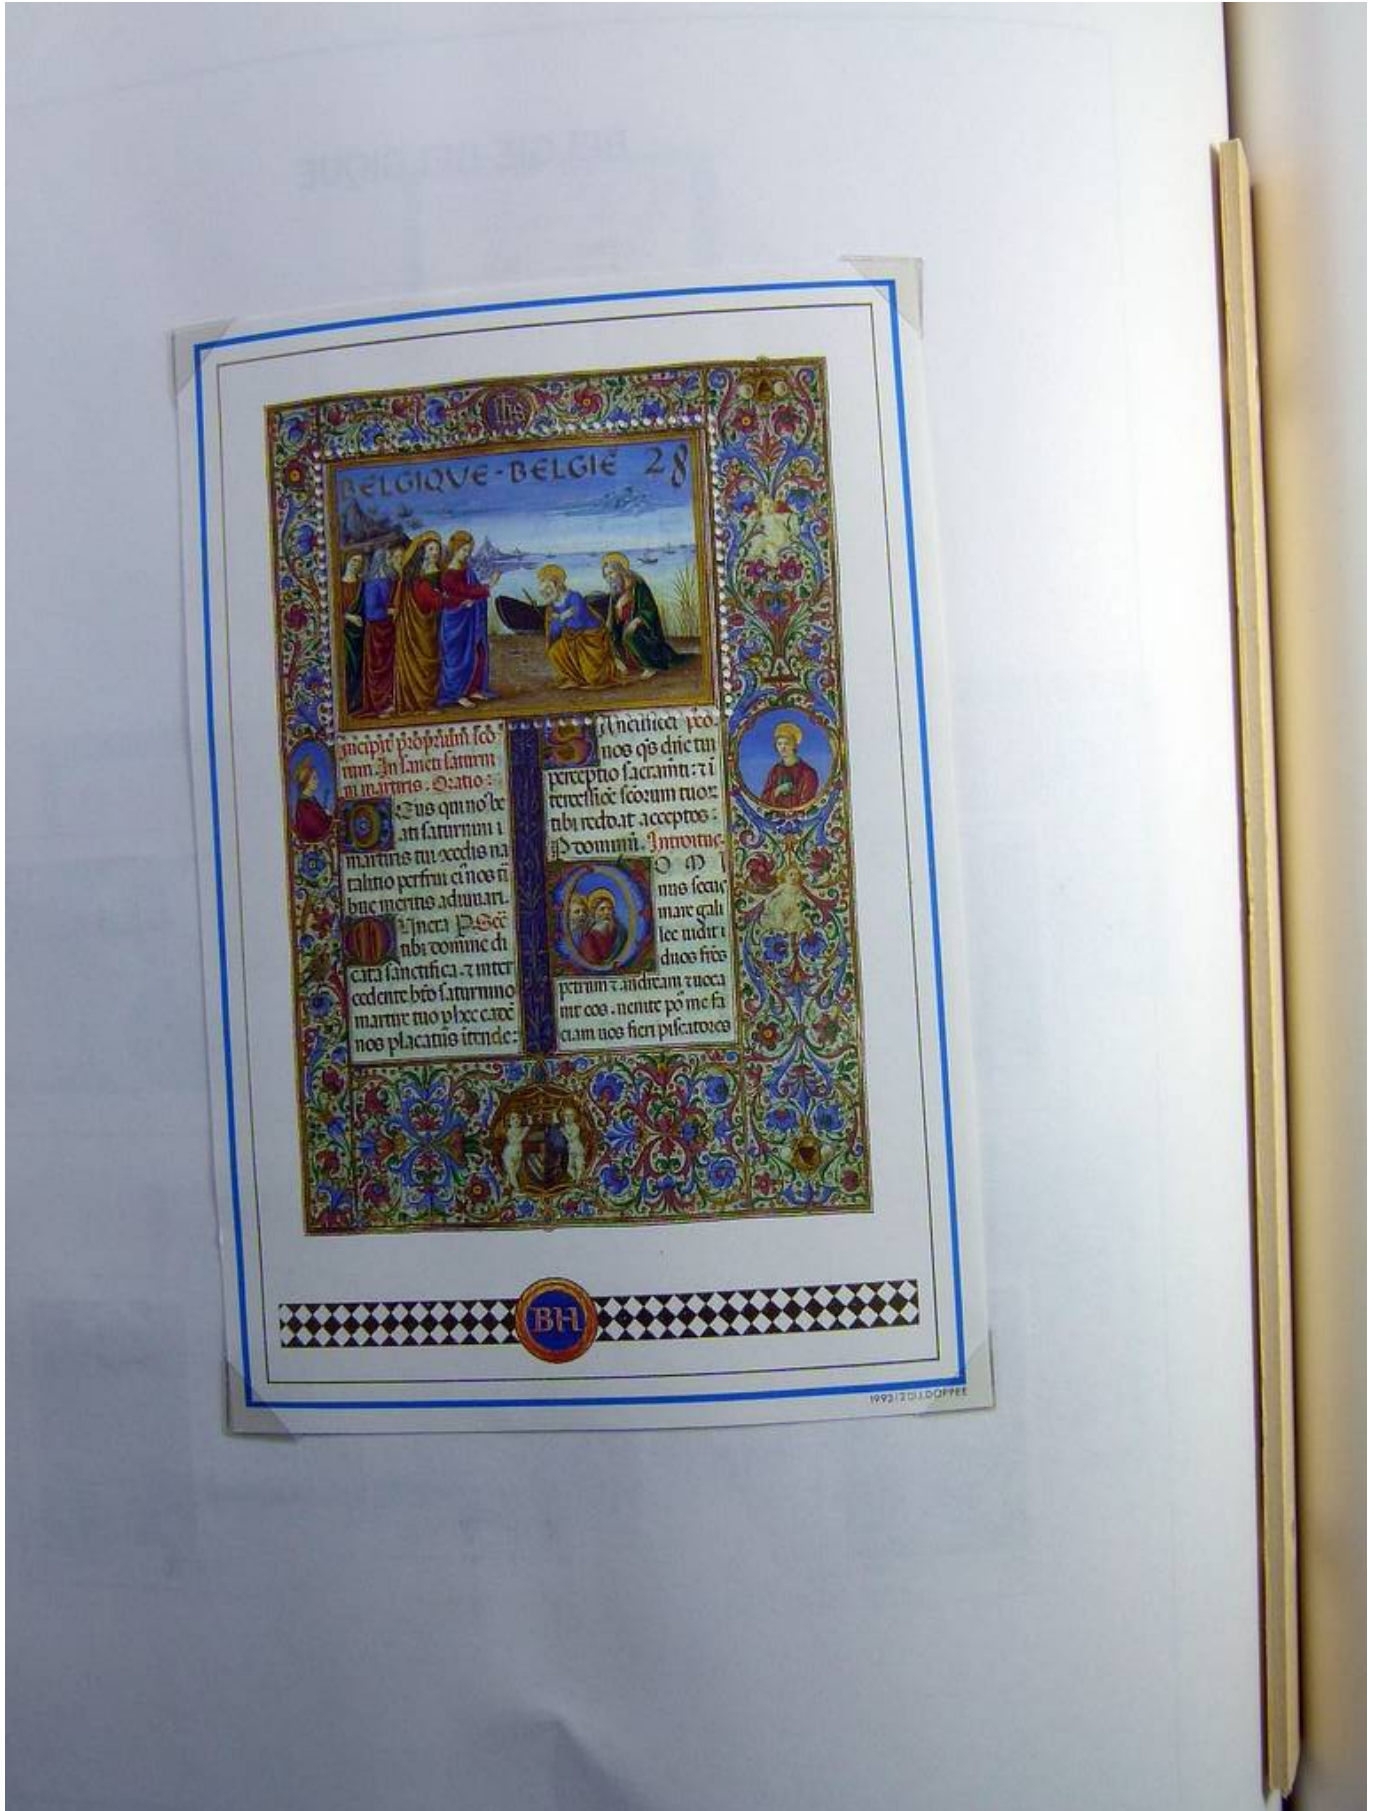 BELGIQVE-BELGIE 28
Incipit proprium sco
rum. In sancti saturni
ni martiris. Oratio:
Deus qui nos be
ati saturnini
martiris tui
talitio perfrui
bus meritis adiuuari.
Secr
tibi domine di
cata sanctifica. et inter
cedente bto saturnino
martire tuo p hec eadē
nos placatus itende:
Sanctificet pro
nos qs dñe tui
perceptio sacramti: et i
tercessioe scorum tuoꝝ
tibi reddat acceptos:
P dominū. Introitus
D M I
nus secus
mare gali
lee uidit
duos frēs
petrum et andream et uoca
uit eos. uenite pō me fa
ciam uos fieri piscatores
BH
1993|20|J.DOPPEE
BELGIE BELGIQUE